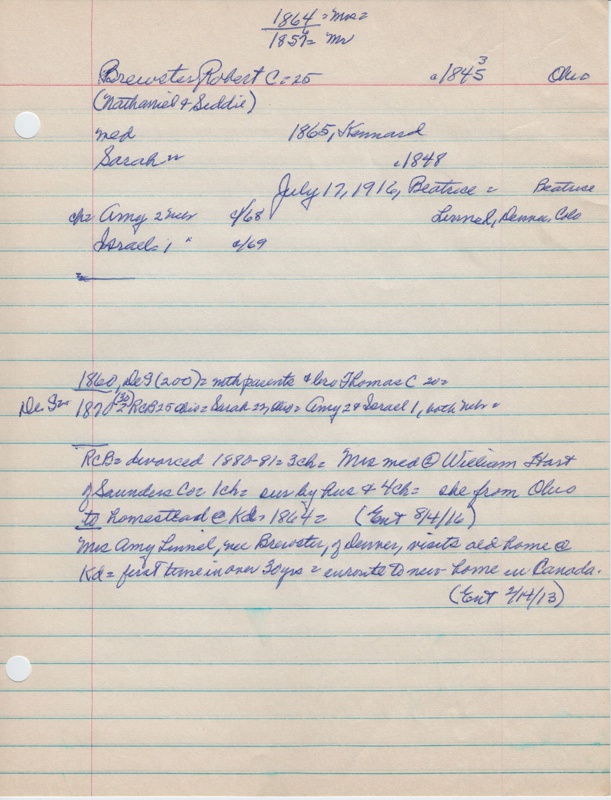 1864 = Mrs =
1857 = Mr
Brewster, Robert C = 25 c1845 3 Ohio
(Nathaniel & Seddie)
med 1865, Kennard
Sarah = c1848
July 17, 1916, Beatrice = Beatrice
ch = Amy 2 Nebr c/68 Linnel, Denver, Colo
Israel = 1 " c/69
1860, De S (200) = with parents & bro Thomas C 20 =
De S = 1870 (32) RCB 25 Ohio = Sarah 22, Ohio = Amy 2 & Israel 1, both Nebr =
RCB = divorced 1880-81 = 3ch = Mrs med @ William Hart
of Saunders Co = 1ch = sur by hus & 4ch = she from Ohio
to homestead @ Kd = 1864 = (Ent 8/4/16)
Mrs Amy Linnel, nee Brewster, of Denver, visits old home @
Kd = first time in over 30 yrs = enroute to new home in Canada.
(Ent 2/14/13)